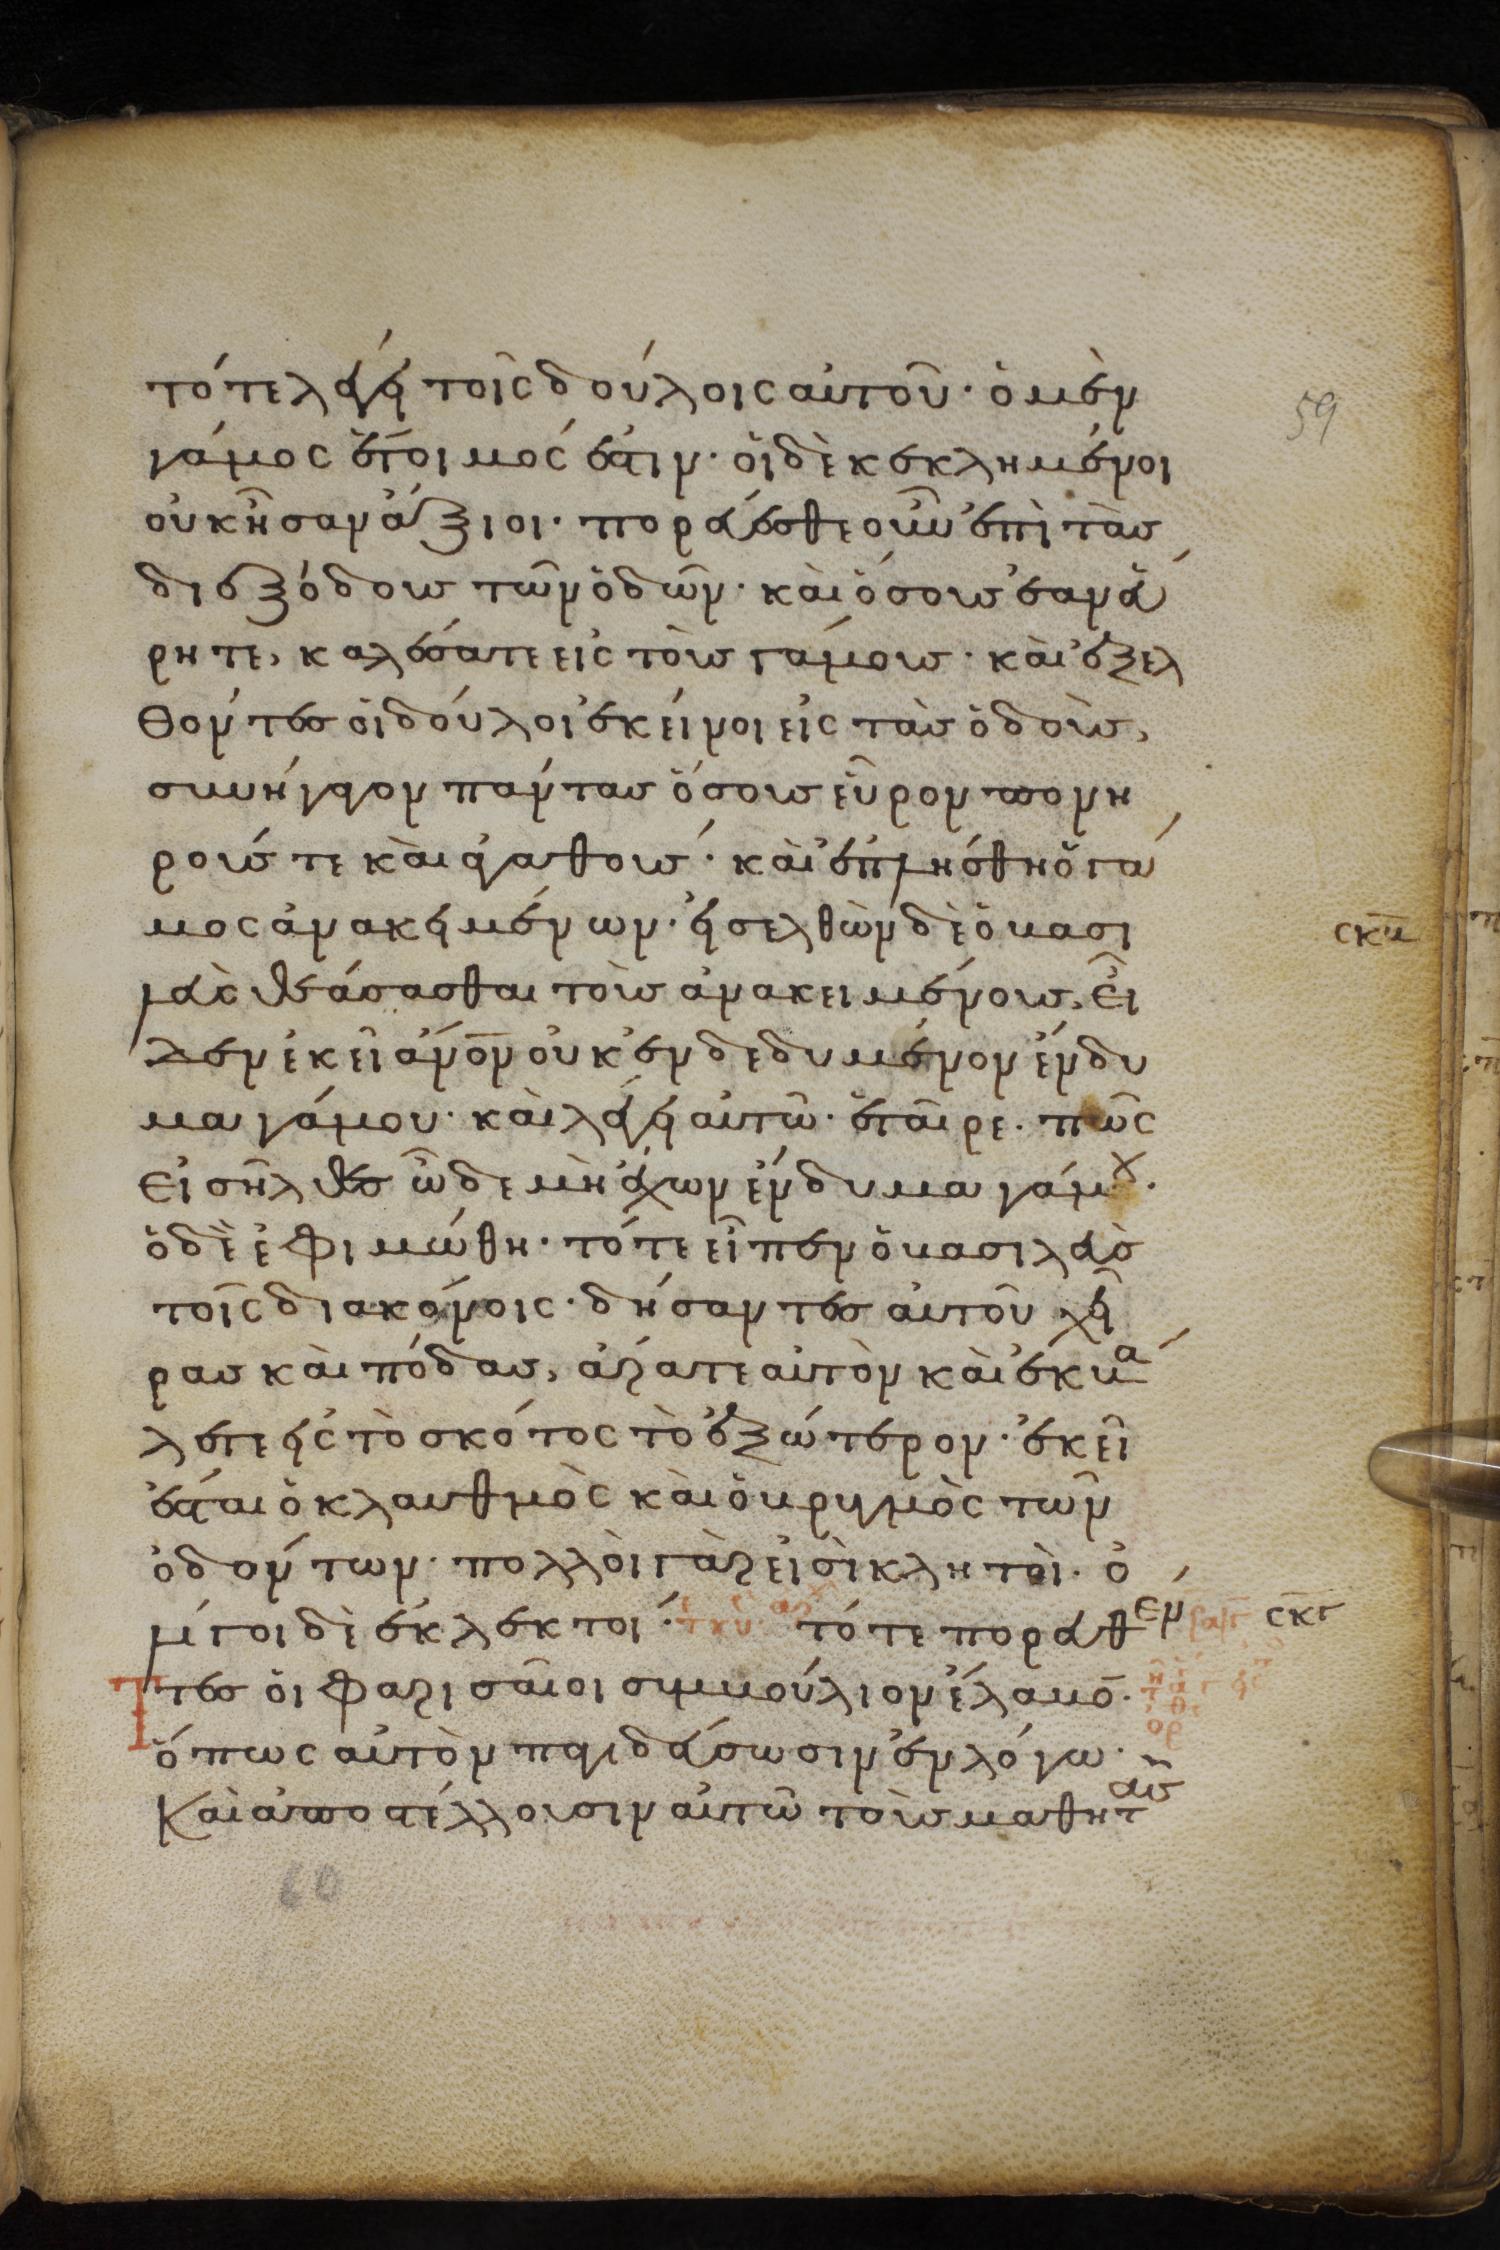 τότε λέγει τοῖς δούλοις αὐτοῦ· ὁ μὲν
γάμος ἕτοιμός ἐστιν· οἱ δὲ κεκλημένοι
οὐκ ἦσαν ἄξιοι· πορεύεσθε οὖν ἐπὶ τὰς
διεξόδους τῶν ὁδῶν· καὶ ὅσους ἐὰν εὕ
ρητε, καλέσατε εἰς τοὺς γάμους· καὶ ἐξελ
θόντες οἱ δούλοι ἐκείνοι εἰς τὰς ὁδοὺς,
συνήγαγον πάντας ὅσους εὗρον πονη
ρούς τε καὶ ἀγαθούς· καὶ ἐπλήσθη ὁ γά
μος ἀνακειμένων· εἰσελθὼν δὲ ὁ βασι
λεὺς θεάσασθαι τοὺς ἀνακειμένους, εἶ
δεν ἐκεῖ ἄνον οὐκ ἐνδεδυμένον ἔνδυ
μα γάμου· καὶ λέγει αὐτῶ· ἑταῖρε· πῶς
εἰσῆλθες ὧδε μὴ ἔχων ἔνδυμα γάμου·
ὁ δὲ ἐφιμώθη· τότε εἶπεν ὁ βασιλεὺς
τοῖς διακόνοις· δήσαντες αὐτοῦ χεῖ
ρας καὶ πόδας, ἄρατε αὐτὸν καὶ ἐκβά
λετε εἰς τὸ σκότος τὸ ἐξώτερον· ἐκεῖ
ἔσται ὁ κλαυθμὸς καὶ ὁ βρυγμὸς τῶν
ὀδόντων· πολλοὶ γάρ εἰσὶ κλητοὶ· ὀ
λίγοι δὲ ἐκλεκτοί· τότε πορευθέν
τες οἱ φαρισαῖοι συμβούλιον ἔλαβον·
ὅπως αὐτὸν παγιδεύσωσιν ἐν λόγω·
Καὶ ἀποστέλλουσιν αὐτῶ τοὺς μαθητὰς
59
σκβ
σκγ
60